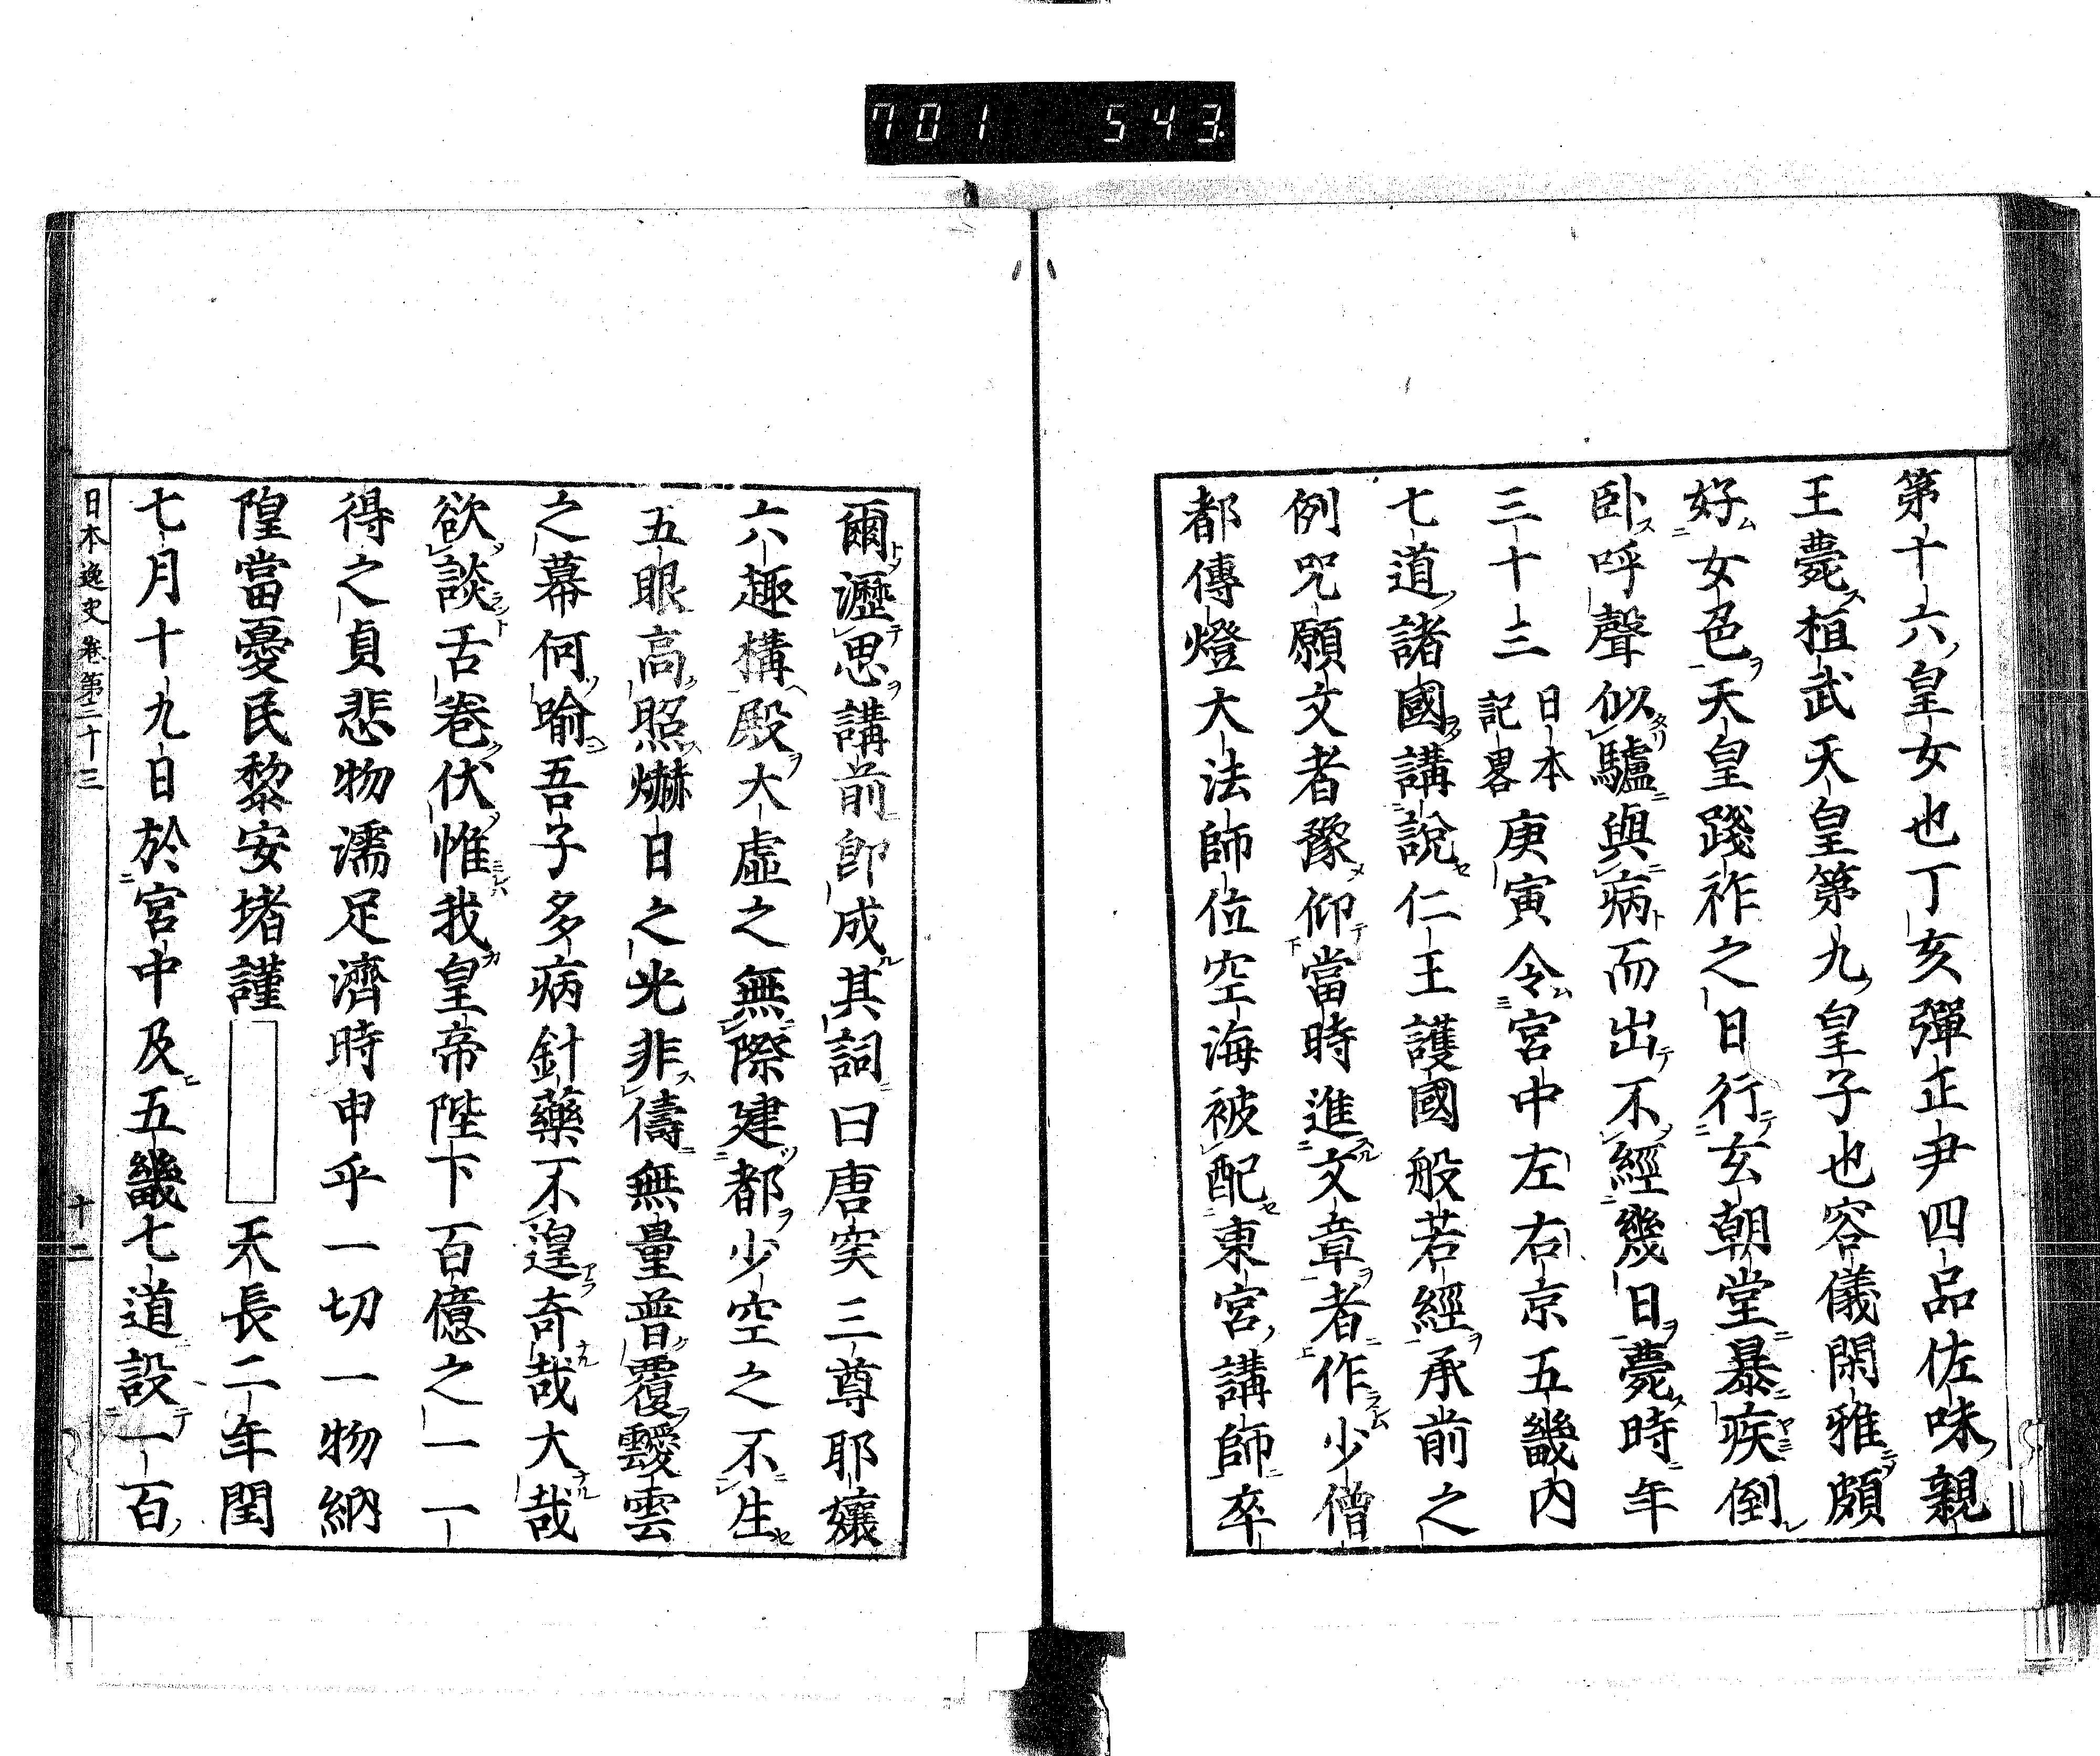 701 543
第十六皇女也丁亥彈正尹四品佐味親
王薨植武天皇第九皇子也容儀閑雅頗
好女色天皇踐祚之日行玄朝堂暴疾倒
卧呼聲似驢與病而出不經幾日薨時年
三十三日本記畧庚寅令宮中左右京五畿內
七道諸國講說仁王護國般若經承前之
例咒願文者豫仰當時進文章者作少僧
都傳燈大法師位空海被配東宮講師卒
爾瀝思講前卽成其詞曰唐突三尊耶孃
六趣構殿大虛之無際建都少空之不生
五眼高照爀日之光非儔無量普覆靉雲
之幕何喻吾子多病針藥不遑奇哉大哉
欲談舌卷伏惟我皇帝陛下百億之一一
得之貞悲物濡足濟時申乎一切一物納
隍當憂民黎安堵謹 天長二年閏
七月十九日於宮中及五畿七道設一百
日本逸史卷第三十三 十二